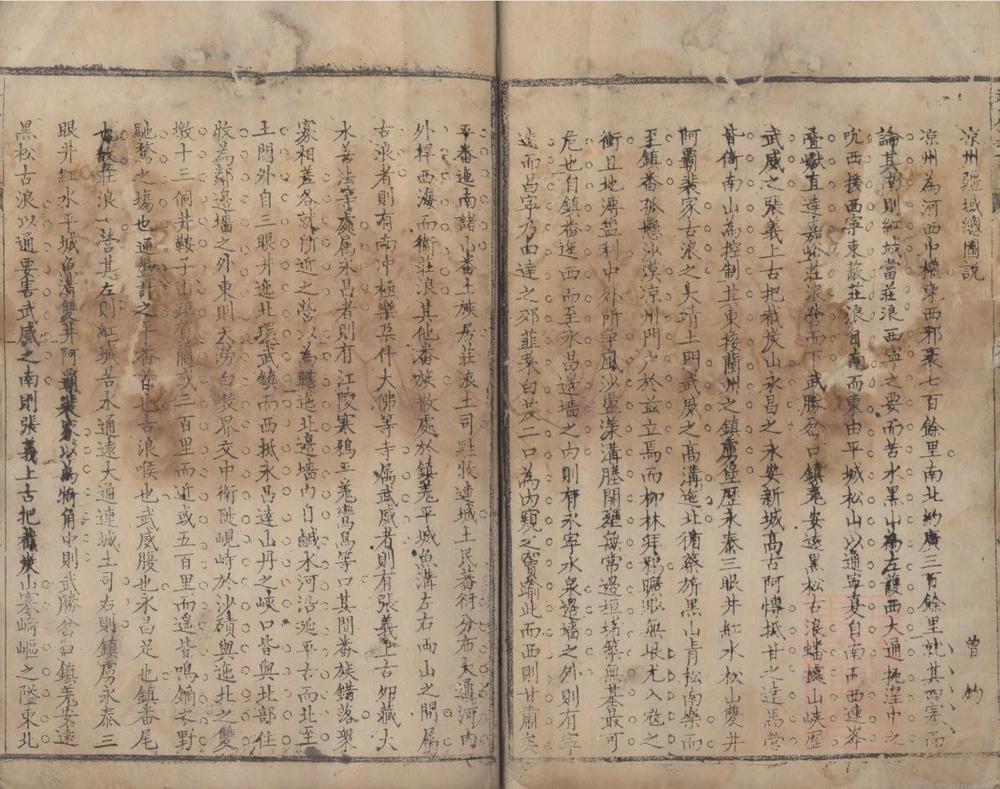 涼州疆域總圖説
曾鈞
涼州為河西巾櫃東西邪袤七百餘里南北約廣三百餘里就其要塞而
論其南則紅城當莊浪西寧之要而苦水黑山為左護西大通扼湟中之
吭西援西寧東蔽莊浪自南而東由平城松山以通寧夏自南而西連莽
疊嶽直達嘉峪莊浪岔而下武勝岔口鎮羌安遠黑松古浪蟠據山峽歷
武威之張義上古把截炭山永昌之永安新城高古阿慱抵甘之達馬營
皆倚南山為控制其東接蘭州之鎮虜堡歷永泰三眼井紅水松山雙井
阿霸裴家古浪之大靖土門武威之髙溝迤北循蔡旂黑山青松南樂而
至鎮番孤懸沙漠涼州門戸於兹立焉而柳林井郷曠渺無垠尤入敵之
衝且地溥益利中外所争風沙壅渫溝塍開壅無常邉垣堵築無基最可
危也自鎮番迤西而至永昌邉墻之内則有永寧水泉邉墻之外則有寧
遠而昌寧乃由達之郊韮菜白茨二口為内窺之竇踰此而西則甘肅矣
平番迤南諸山番土族居莊浪土司駐牧連城土民番衍分布大通河内
外捍西海而衛莊浪其他番族散處於鎮羌平城魚溝左右兩山之間属
古浪者則有南冲極樂朵什大佛等寺属武威者則有張義上古夘藏大
水善法等處属永昌者則有江陵寒鴉平羌鸞鳥等口其間番族錯落衆
寡相差各就所近之營以為轄迤北邉墻内自鹹水河沿迤平古而北至
土門外自三眼井迤北環武鎮而西抵永昌達山丹之峽口皆與北部住
牧為鄰邉墻之外東則大澇白墩界交中衛陡峴峙於沙磧與迤北之雙
墩十三個井鞍子山頭蘭或三百里而近或五百里而遥皆鳴鏑牧野
馳騖之塲也通盤計之平番首也古浪喉也武威腹也永昌足也鎮番尾
也故莊浪一營其左則紅城苦水通遠大通連城土司右則鎮虜永泰三
眼井紅水平城魚溝雙井阿霸裴家以為犄角中則武勝岔口鎮羌安遠
黑松古浪以通要害武威之南則張義上古把截炭山塞﨑嶇之隘東北